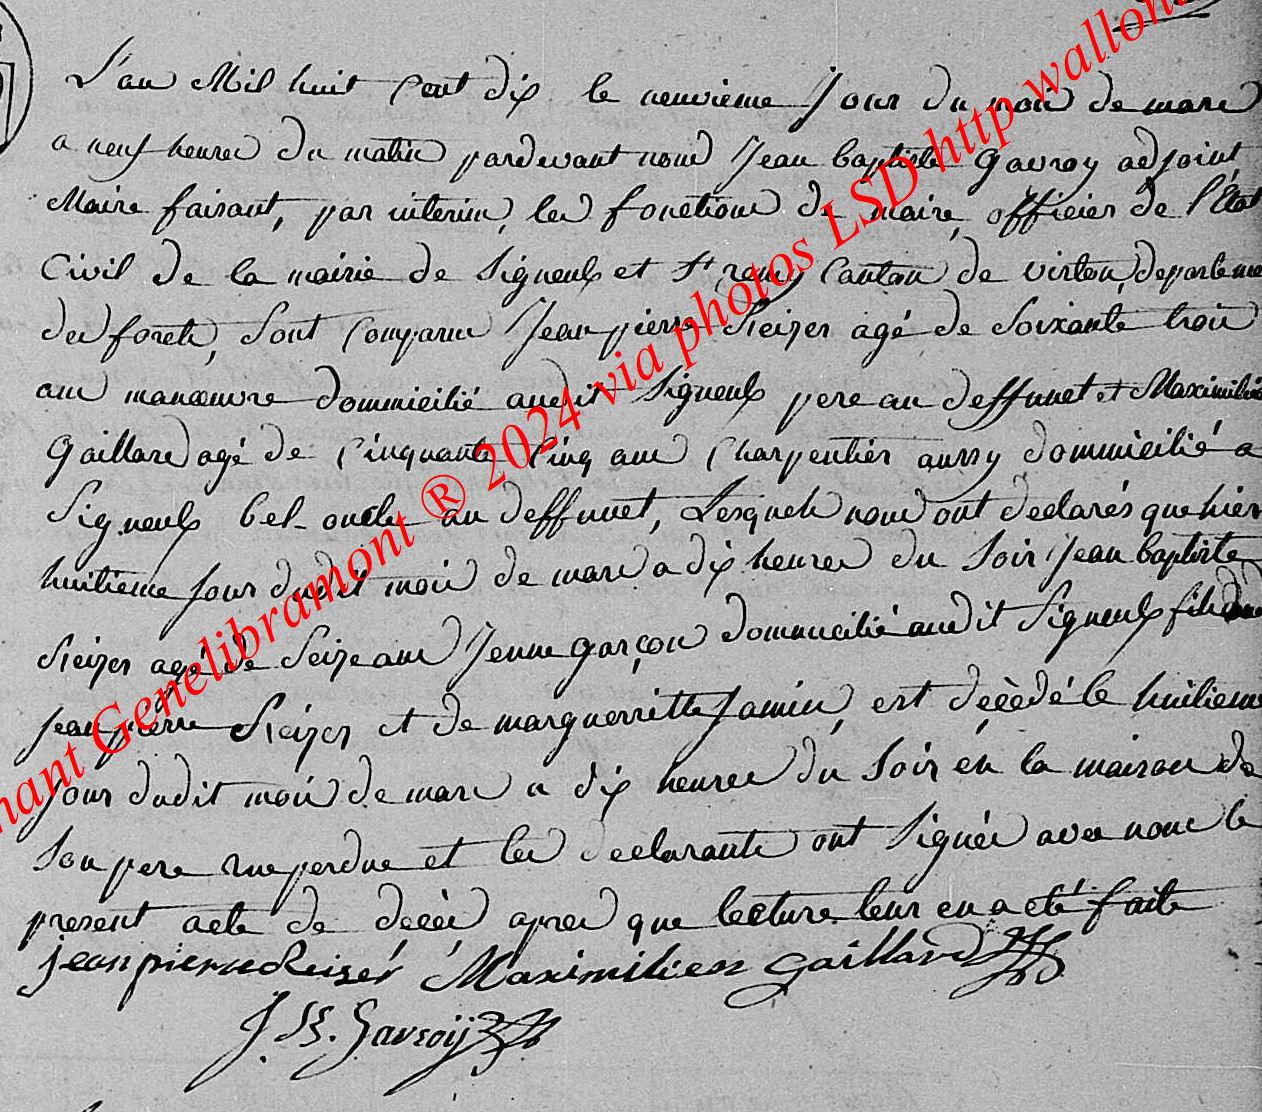 L'an Mil huit Cent dix le neuvieme Jour du mois de mars
a neuf heures du matin pardevant nous Jean baptiste Gavroy adjoint
Maire faisant, par interim, les fonctions de maire, officier de l'Etat
Civil de la mairie de Signeulx et St remy Canton de virton, departeme
des forets, Sont Comparus Jean pierre Reizer agé de Soixante trois
ans manœuvre dommicilié audit Signeulx pere au deffunct et Maximilie
Gaillard agé de Cinquante Cinq ans Charpentier aussy dommicilié a
Signeulx bel-oncle au deffunct, Lesquels nous ont declarés que hier
huitieme Jour dudit mois de mars a dix heures du Soir Jean baptiste
Reizer agé de Seize ans Jeune garçon dommicilié audit Signeulx fils de
Jean pierre Reizer et de marguerritte Jamin, est décédé le huitieme
Jour dudit mois de mars a dix heures du Soir en la maison de
Son pere rue perdue et les declarants ont Signés avec nous le
present acte de décés apres que lecture leur en a eté faite
jean pierre Reiser Maximilien Gaillard
J. B. Gavroij
nant Genelibramont ® 2024 via photos LSD http wallon